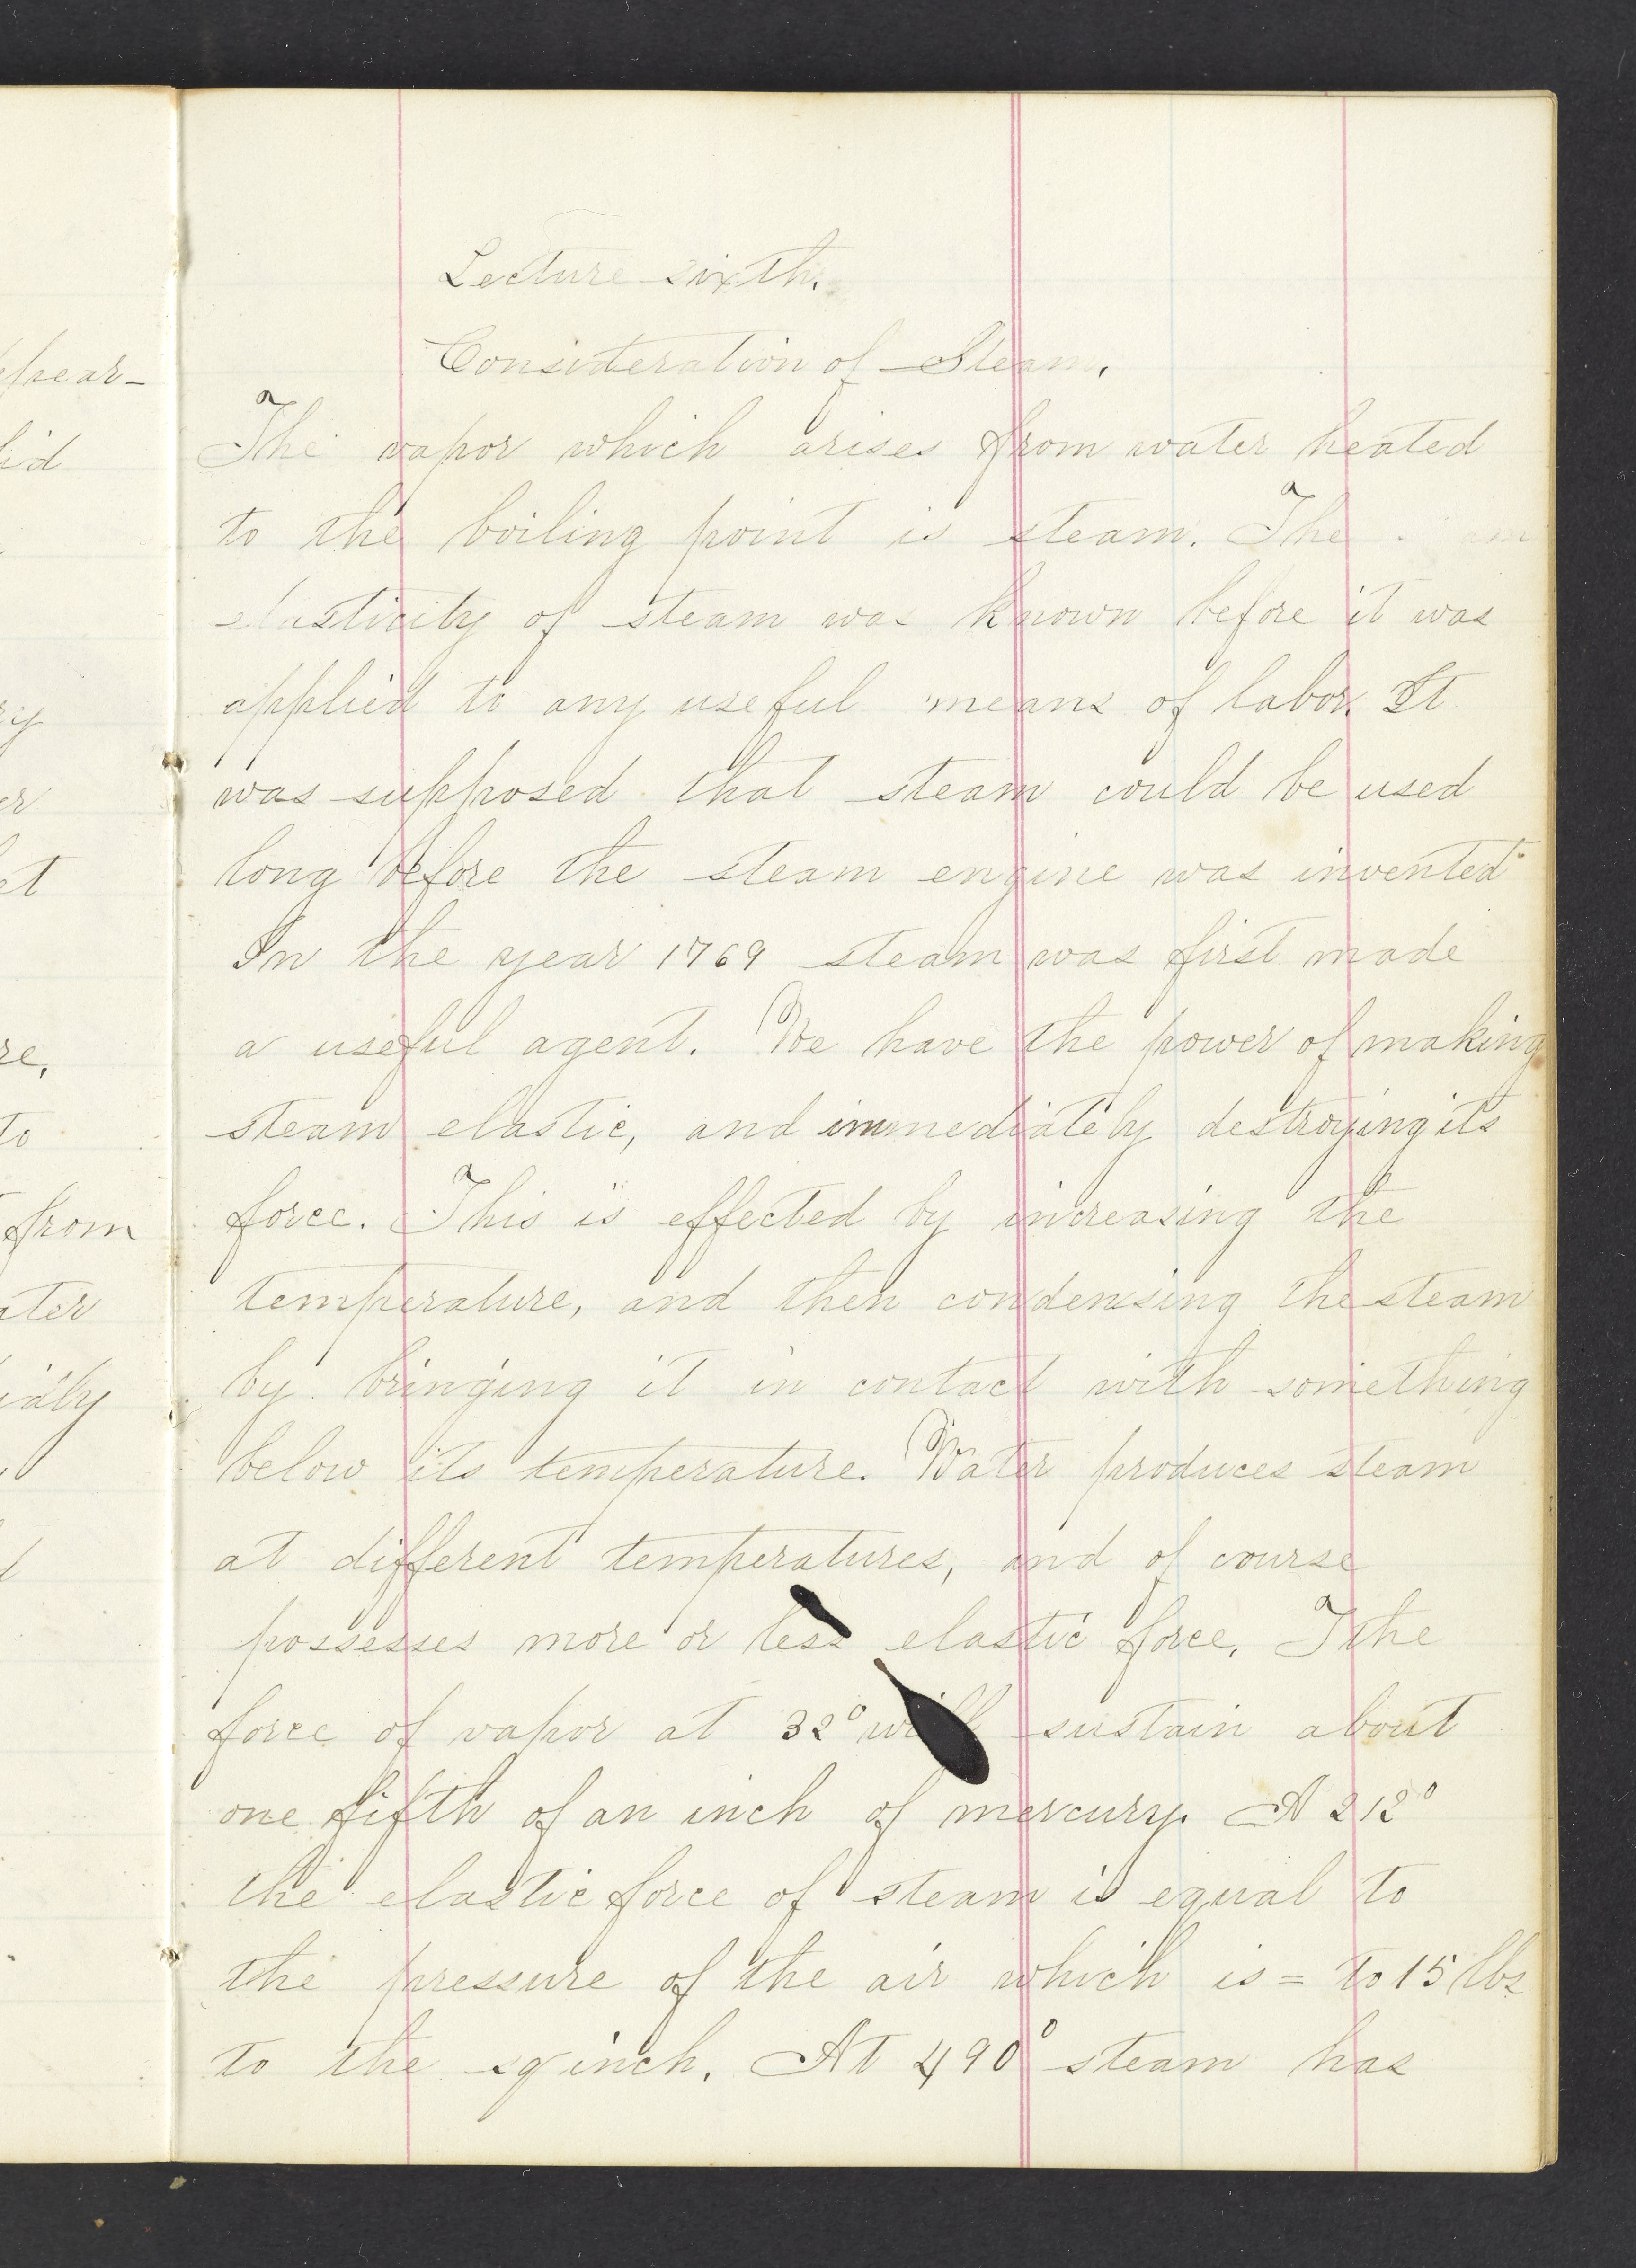 Lecture sixth.
Consideration of Steam.
The vapor which arises from water heated
to the boiling point is steam. The
elasticity of steam was known before it was
applied to any useful means of labor. It
was supposed that steam could be used
long before the steam engine was invented
In the year 1769 steam was first made
a useful agent. We have the power of making
steam elastic, and immediately destroying its
force. This is effected by increasing the
temperature, and then condensing the steam
by bringing it in contact with something
below its temperature. Water produces steam
at different temperatures, and of course
possesses more or less elastic force. The
force of vapor at 32° will sustain about
one fifth of an inch of mercury. A 212°
the elastic force of steam is equal to
the pressure of the air which is = to 15 lbs
to the sq inch. At 490° steam has
pear-
id
ry
er
et
re,
to
from
ater
idly